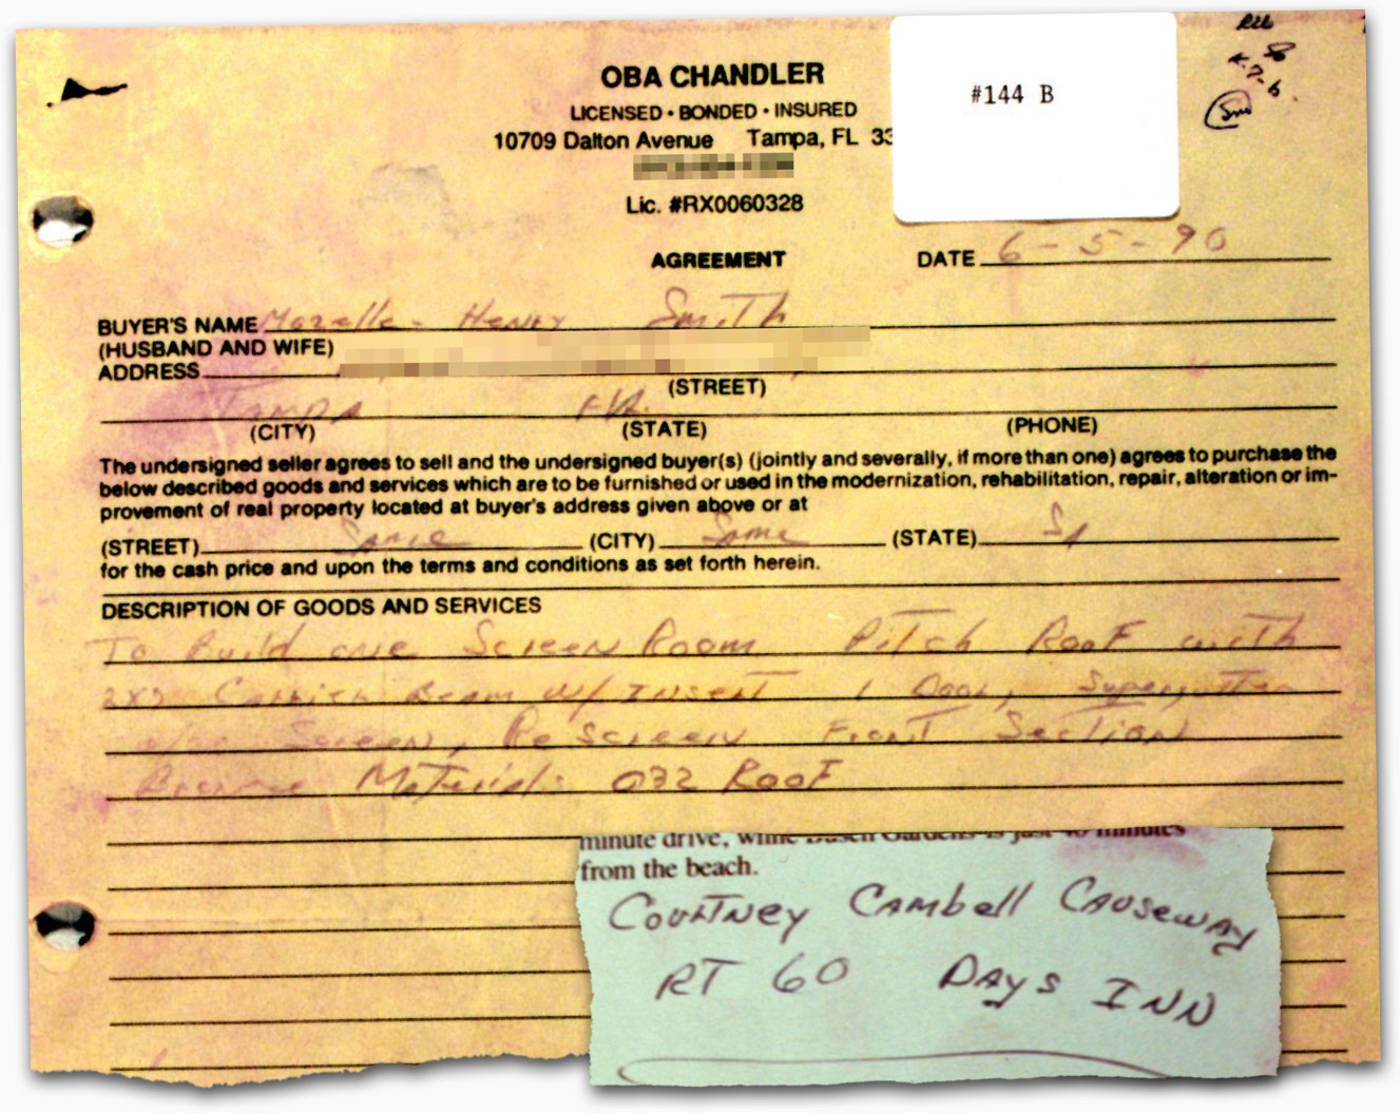 OBA CHANDLER
#144 B
LICENSED • BONDED • INSURED
10709 Dalton Avenue Tampa, FL 33
Lic. #RX0060328
AGREEMENT DATE 6-5-90
BUYER'S NAME Mozelle - Henry Smith
(HUSBAND AND WIFE)
ADDRESS
(STREET)
Tampa Fla.
(CITY) (STATE) (PHONE)
The undersigned seller agrees to sell and the undersigned buyer(s) (jointly and severally, if more than one) agrees to purchase the
below described goods and services which are to be furnished or used in the modernization, rehabilitation, repair, alteration or im-
provement of real property located at buyer's address given above or at
(STREET) Same (CITY) Same (STATE)
for the cash price and upon the terms and conditions as set forth herein.
DESCRIPTION OF GOODS AND SERVICES
To Build one Screen Room Pitch Roof with
Carrier Beam w/ Insert 1 Door, Supergutter
Screen, ReScreen Front Section
Bronze Material: 032 Roof
minute drive, while Busch Gardens is just 45 minutes
from the beach.
Courtney Cambell Causeway
RT 60 Days Inn